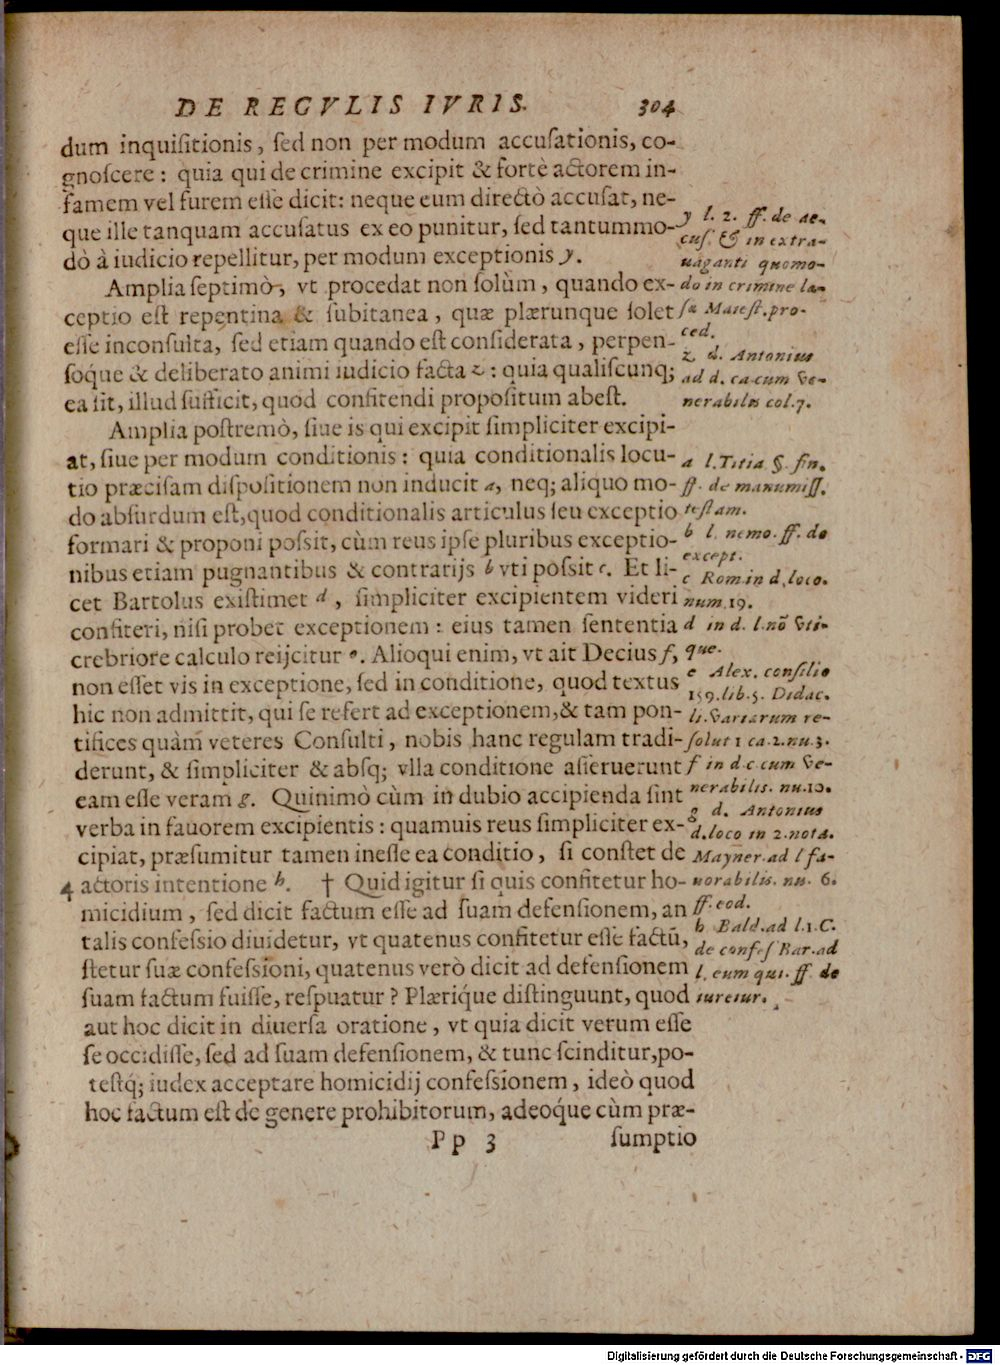 DE REGVLIS IVRIS. 304
dum inquisitionis, sed non per modum accusationis, co-
gnoscere: quia qui de crimine excipit & fortè actorem in-
famem vel furem esse dicit: neque eum directò accusat, ne-
que ille tanquam accusatus ex eo punitur, sed tantummo-
dò à iudicio repellitur, per modum exceptionis y.
Amplia septimò, vt procedat non solùm, quando ex-
ceptio est repentina & subitanea, quæ plærunque solet
esse inconsulta, sed etiam quando est considerata, perpen-
soque & deliberato animi iudicio facta z: quia qualiscunq;
ea sit, illud sufficit, quòd confitendi propositum abest.
Amplia postremò, siue is qui excipit simpliciter excipi-
at, siue per modum conditionis: quia conditionalis locu-
tio præcisam dispositionem non inducit a, neq; aliquo mo-
do absurdum est, quod conditionalis articulus seu exceptio
formari & proponi possit, cùm reus ipse pluribus exceptio-
nibus etiam pugnantibus & contrarijs b vti possit c. Et li-
cet Bartolus existimet d, simpliciter excipientem videri
confiteri, nisi probet exceptionem: eius tamen sententia
crebriore calculo reijcitur e. Alioqui enim, vt ait Decius f,
non esset vis in exceptione, sed in conditione, quod textus
hic non admittit, qui se refert ad exceptionem, & tam pon-
tifices quàm veteres Consulti, nobis hanc regulam tradi-
derunt, & simpliciter & absq; vlla conditione asseruerunt
eam esse veram g. Quinimò cùm in dubio accipienda sint
verba in fauorem excipientis: quamuis reus simpliciter ex-
cipiat, præsumitur tamen inesse ea conditio, si constet de
4 actoris intentione h. † Quid igitur si quis confitetur ho-
micidium, sed dicit factum esse ad suam defensionem, an
talis confessio diuidetur, vt quatenus confitetur esse factũ,
stetur suæ confessioni, quatenus verò dicit ad defensionem
suam factum fuisse, respuatur? Plæríque distinguunt, quod
aut hoc dicit in diuersa oratione, vt quia dicit verum esse
se occidisse, sed ad suam defensionem, & tunc scinditur, po-
testq; iudex acceptare homicidij confessionem, ideò quod
hoc factum est de genere prohibitorum, adeóque cùm præ-
Pp 3 sumptio
y l. 2. ff. de ac-
cus. & in extra-
uaganti quomo-
do in crimine læ-
sæ Maiest. pro-
ced.
z d. Antonius
ad d. ca cum Ve-
nerabilis col. 7.
a l. Titia §. fin.
ff. de manumiss.
testam.
b l. nemo. ff. de
except.
c Rom. in d. loco.
num. 19.
d in d. l. nõ vti-
que.
e Alex. consilio
159. lib. 5. Didac.
li. variarum re-
solut 1 ca. 2. nu. 3.
f in d c cum Ve-
nerabilis. nu. 10.
g d. Antonius
d. loco in 2. nota.
Mayner. ad l fa-
uorabilis. nu. 6.
ff. eod.
h Bald. ad l. 1. C.
de confes Bar. ad
l. cum qui. ff. de
iureiur.
Digitalisierung gefördert durch die Deutsche Forschungsgemeinschaft - DFG